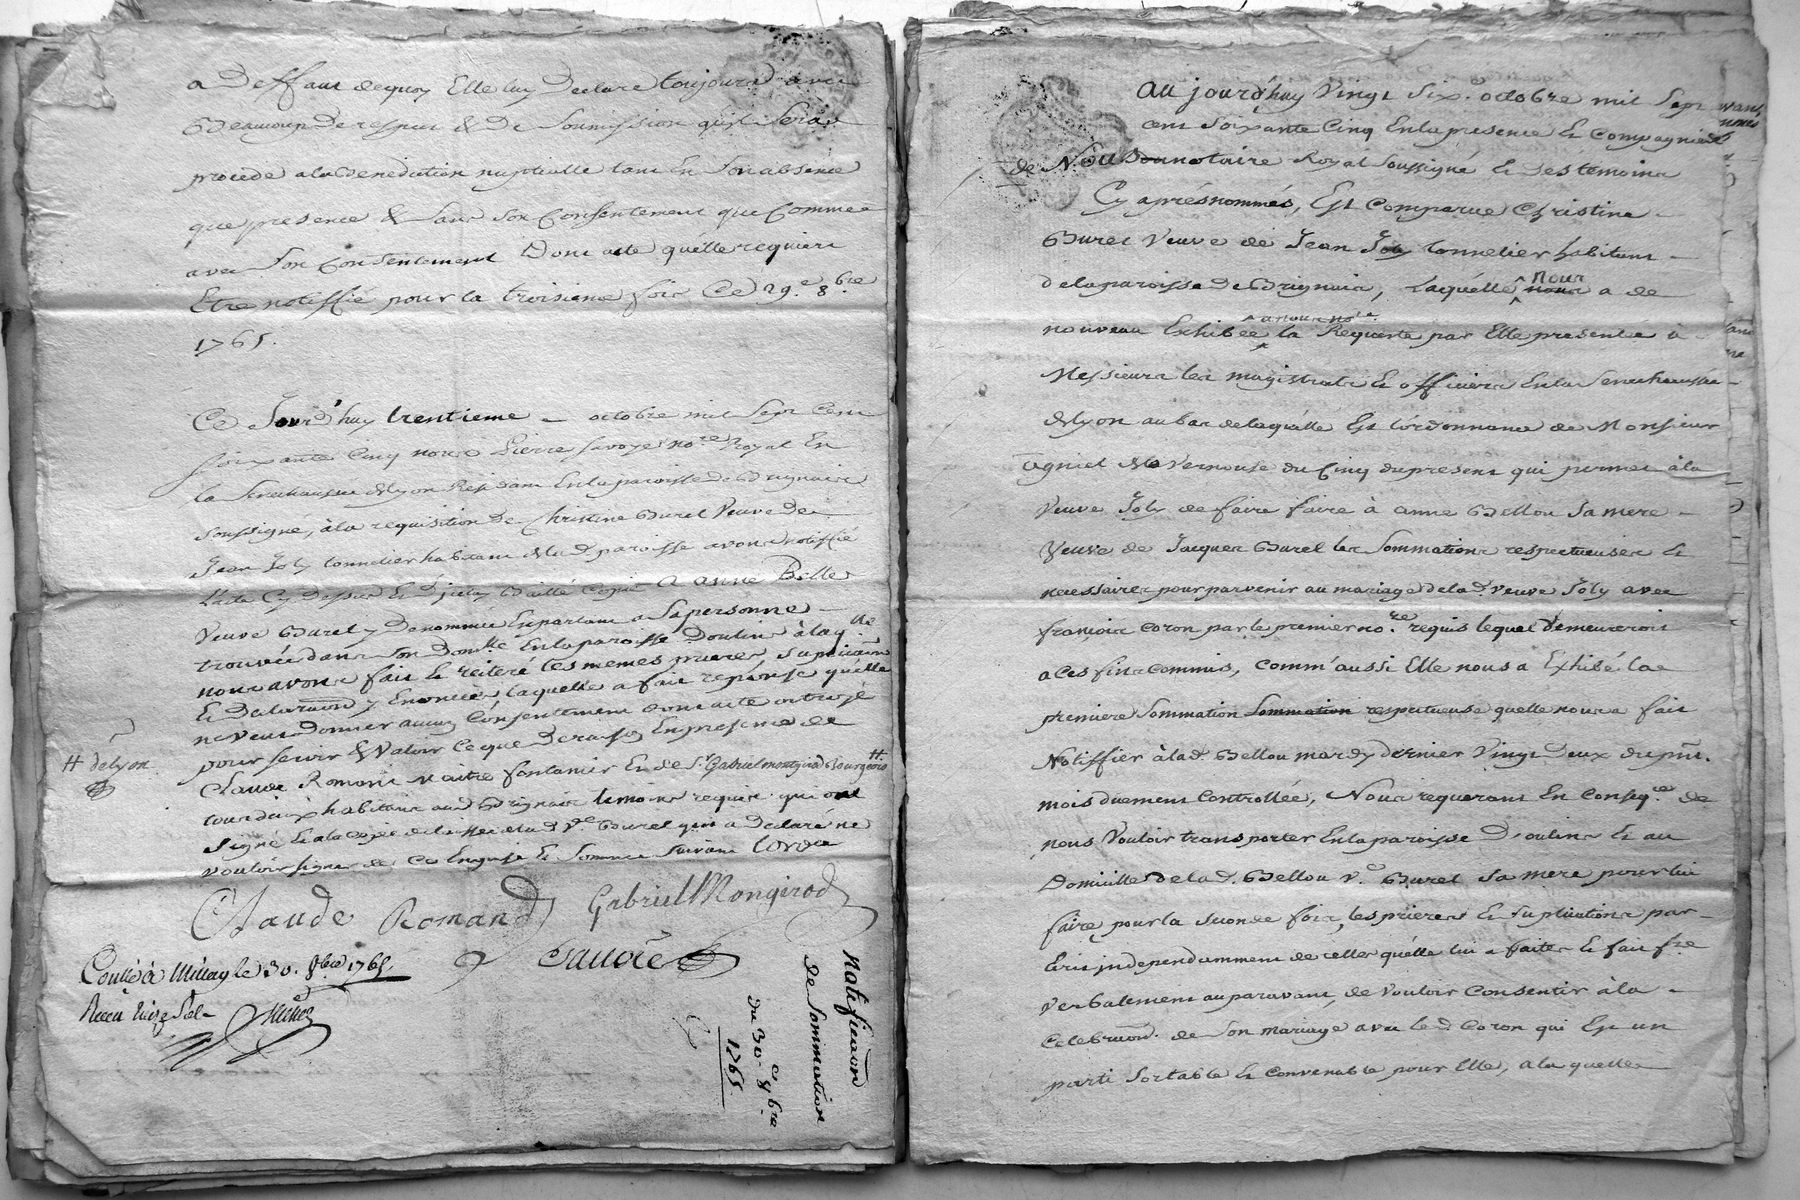 a Deffaut dequoy Elle luy Declare toujours avec
Beaucoup De respect & De Soumission quil Sera
procédé ala Benediction nuptialle tant En Son absence
que presence & Sans Son Consentement que Comme
avec Son Consentement Dont acte quélle requiert
Etre notiffié pour la troisieme fois Ce 29e. 8bre
1765.
Ce Jourd'huy trentieme octobre mil Sept Cent
Soixante Cinq nous Pierre Savoye nore Royal En
la Senechaussée de Lyon Residant En la paroisse de Brignais
soussigné, à la requisition de Christine Burel Veuve de
Jean Joly tonnelier habitant de lad paroisse avons notiffié
l'acte Cy Dessus Et D'jceluy Baillé Copie a anne Bellou
Veuve Burel y Denommée En parlant a Sa personne
trouvée dans Son Domlle En la paroisse Doulins à laqlle
nous avons fait & reiteré les memes prieres Suplications
Et Declaraõn y Enoncées laquelle a fait reponse quélle
ne Veut Donner aucun Consentement dont acte octroyé
pour servir & Valoir Ce que De raison En presence de
Claude Romand Maitre fontanier Et de Sr. Gabriel Mongirod Bourgeois #
# de lyon
tous deux habitans aud Brignais temoins requis qui ont
Signé Et a la Copie delaissée a lad Ve Burel qui a Declaré ne
vouloir signer de Ce Enquise Et Sommée Suivant Lordce
Claude Romand Gabriel Mongirod
Savoïe
Conllé à Millery le 30. 8bre 1765.
Reçu treize Sols
Notificaõn
de Sommation
Du 30e 8bre
1765
Aujourd'huy Vingt Six. octobre mil Sept
cent Soixante Cinq En la presence Et Compagnie
de Nous notaire Royal Soussigné Et des temoins
Cy aprés nommés, Est Comparue Christine
Burel Veuve de Jean Joly tonnelier habitant
de la paroisse De Brignais, Laquélle nous a de
nouveau Exhibée a nous nore. la Requeste par Elle presentée à
Messieurs les magistrats Et officiers En la Senechaussée
de Lyon au bas de laquélle Est l'ordonnance de Monsieur
Agniel de la Vernouse du Cinq du present qui permet à la
Veuve Joly de faire faire à anne Bellou Sa mere
Veuve de Jacques Burel les Sommations respectueuses Et
necessaires pour parvenir au mariage de lad Veuve Joly avec
françois Coron par le premier nore. requis lequel demeureroit
a Ces fins Commis, Comm'aussi Elle nous a Exhibé la
premiere Sommation Sommation respectueuse quelle nous a fait
Notiffier à lad. Bellou mardy dernier Vingt Deux du pñt.
mois duement Controllée, Nous requerant En Conseqce. de
nous Vouloir transporter En la paroisse D'oulins Et au
Domicille de lad. Bellou Ve. Burel Sa mere pour lui
faire pour la Seconde fois les prieres Et Suplications par
Ecrit jndependamment de celles quélle lui a faites Et fait fre
Verbalement auparavant de Vouloir Consentir à la
Celebraõn. de Son mariage avec led Coron qui Est un
parti Sortable Et Convenable pour Elle, a la quelle